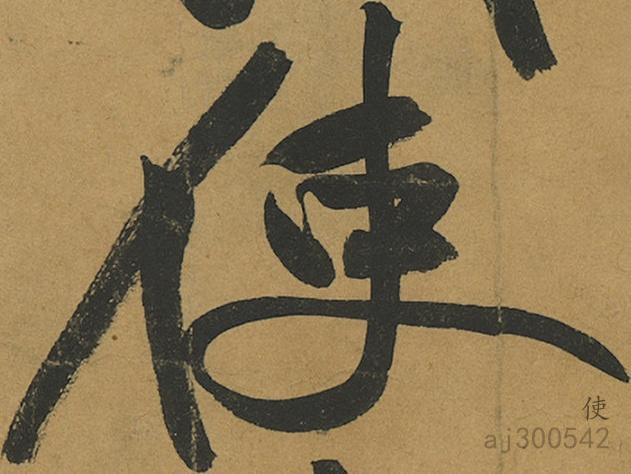 使
使
aj300542